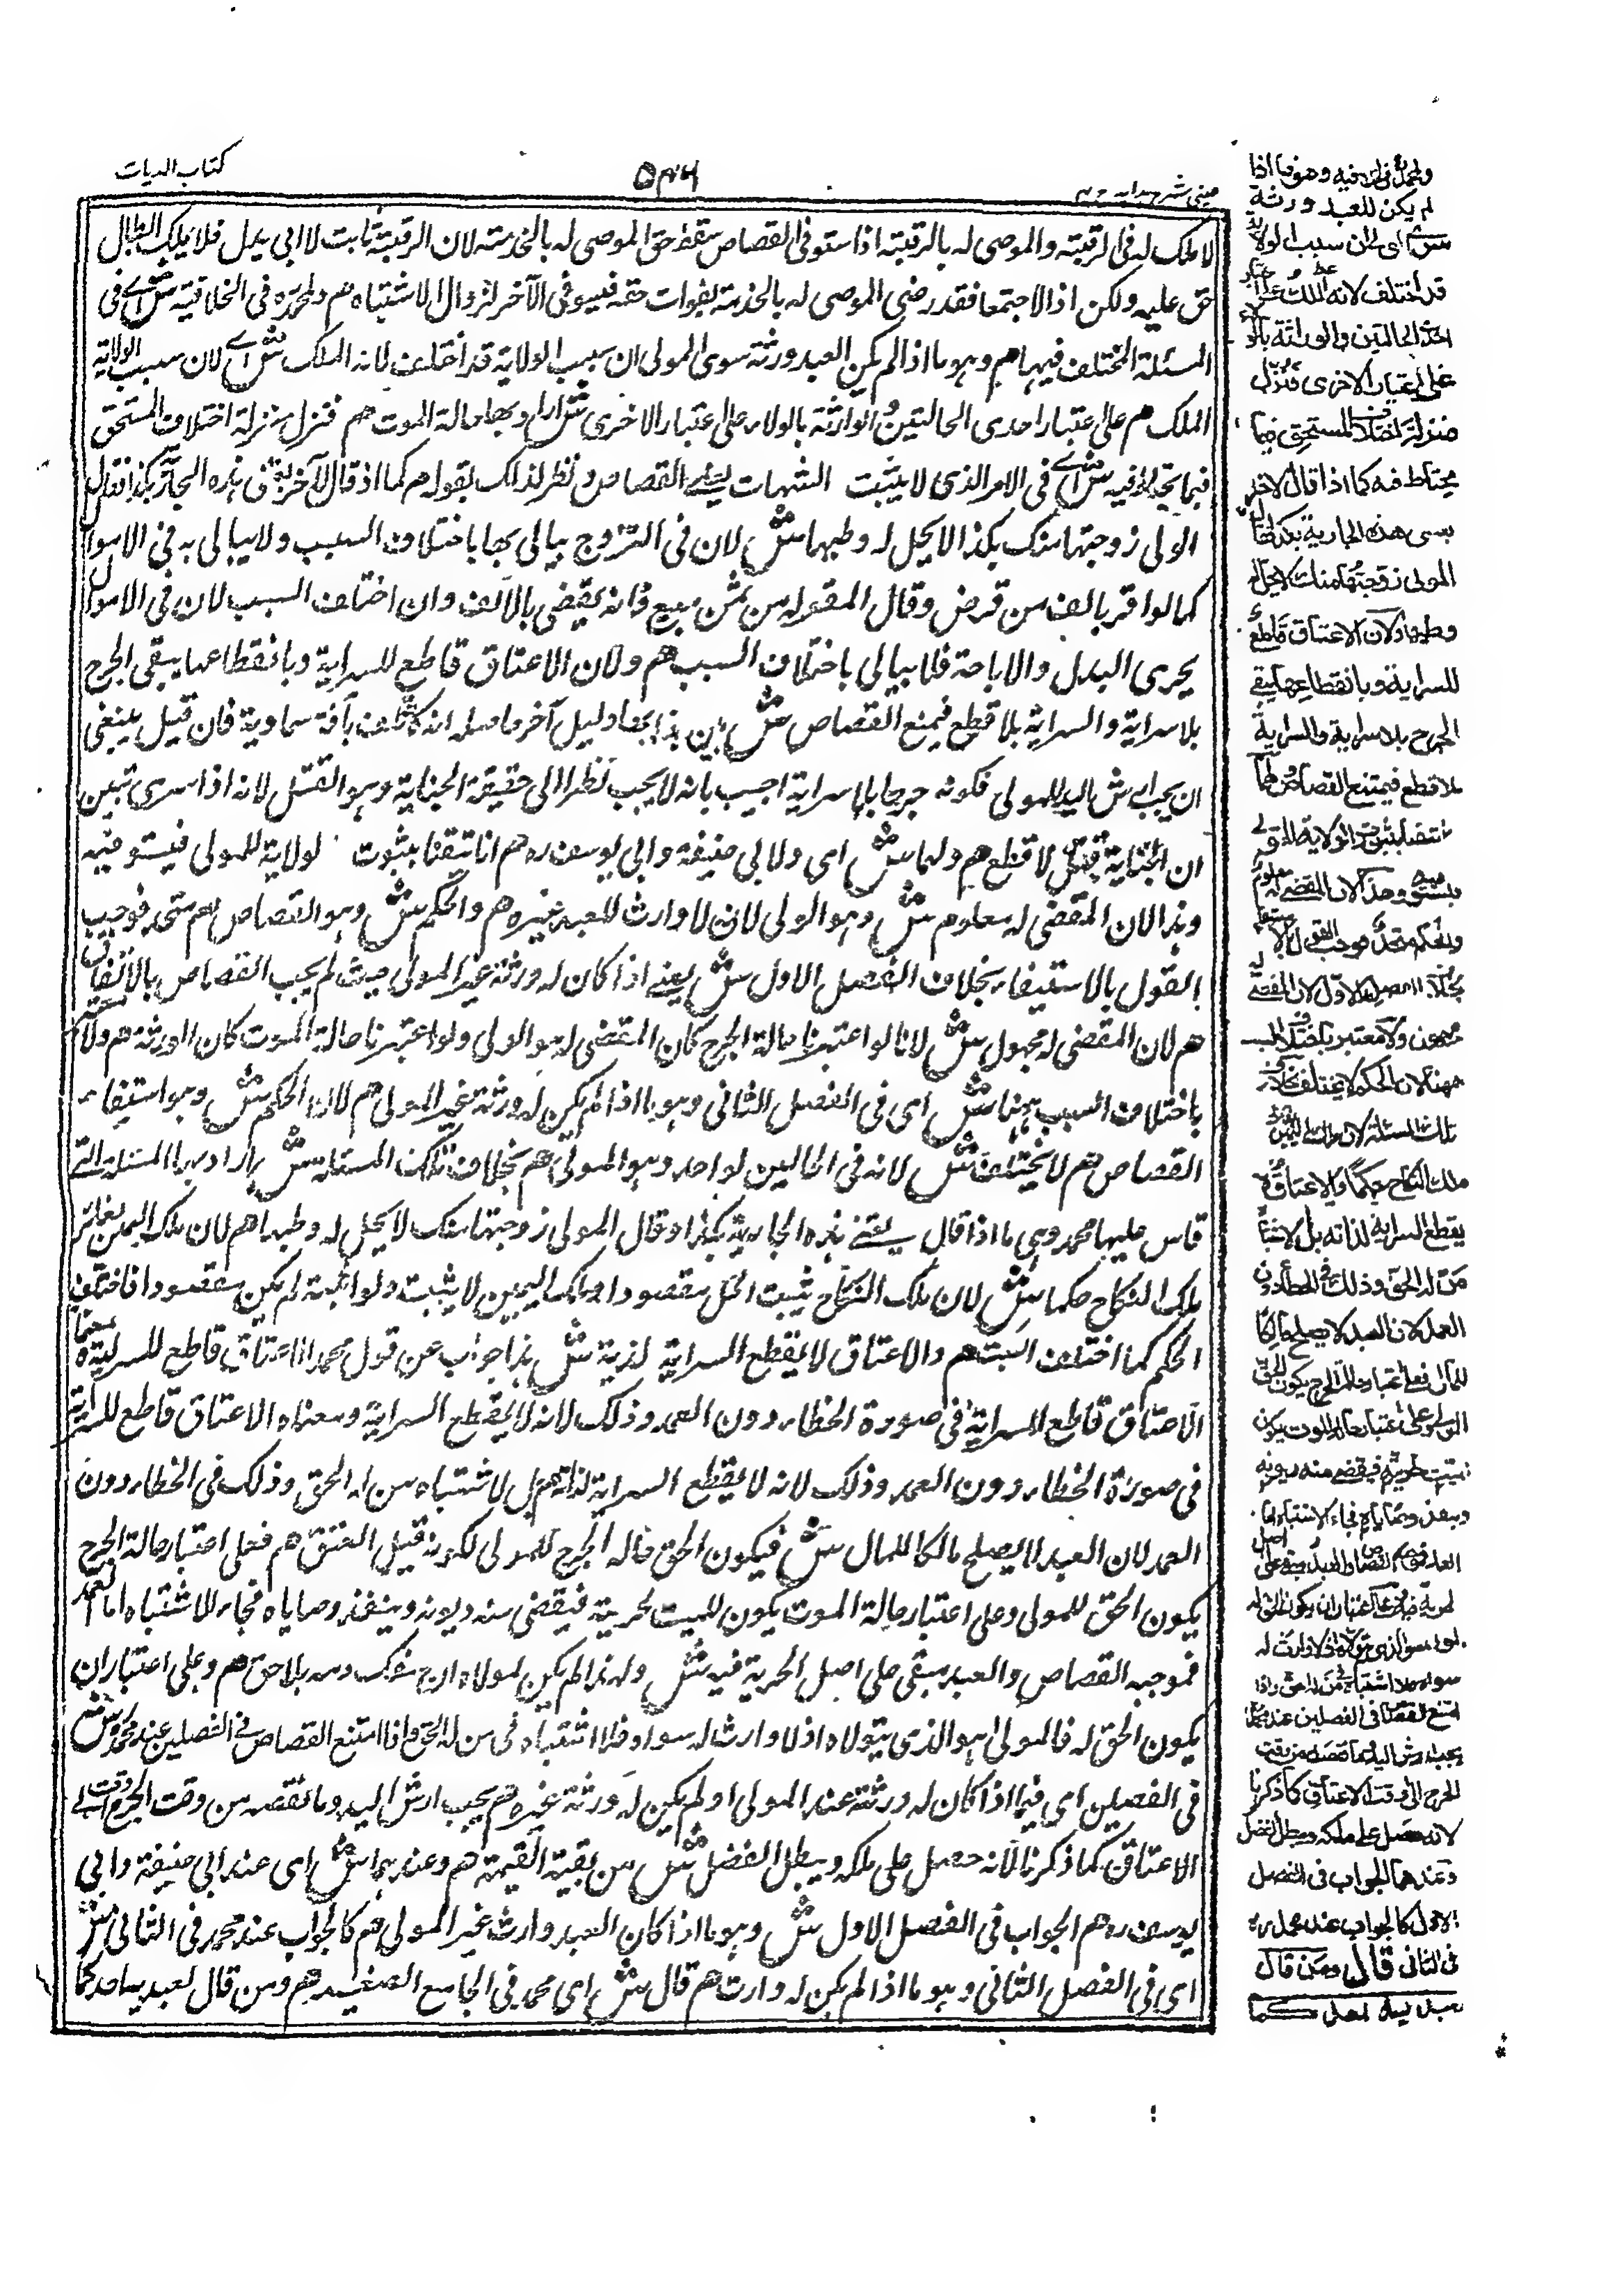 كتاب الديات
٥٤٦
عينى شرح هدايه ج ٤
لا ملك له فى الرقبته والموصى له بالرقبته اذا ستوفى القصاص سقط حق الموصى له بالخدمته لان الرقبته ثابت لا الى بدل فلا يملك ابطال
حق عليه ولكن اذ الاجتمعا فقد رضى الموصى له بالخدمة بفوات حقه فيستوفى الآخر لزوال الاشتباه هم ولمحمدره فى الخلافية ش اى فى
المسئلة المختلف فيها هم وهو ما اذا لم يكن للعبد ورثة سوى المولى ان سبب الولاية قد اختلف لانه الملك ش اى لان سبب الولاية
الملك هم على اعتبار احدى الحالتين والوراثة بالولاء على اعتبار الاخرى ش اراد بها حالة الموت هم فنزل منزلة اختلاف المستحق
فيما يحتاط فيه ش اى فى الامر الذى لا يثبت الشبهات يعنى القصاص ونظر لذلك بقوله هم كما اذ قال لآخر بعتنى هذه الجارية بكذا فقال
المولى زوجتها منك بكذا لا يحل له وطيها ش لان فى التزوج يبالى بها باختلاف السبب ولا يبالى به فى الاموال
كما لو اقر بالف من قرض وقال المقر له من ثمن مبيع فانه يقضى بالالف وان اختلف السبب لان فى الاموال
يجرى البدل والاباحة فلا يبالى باختلاف السبب هم ولان الاعتاق قاطع للسراية وبانقطاعها يبقى الجرح
بلا سراية والسراية بلا قطع فيمنع القصاص ش بين بهذا ايضا دليل آخر حاصله انه كالتلف بآفة سماوية فان قيل ينبغى
ان يجب ارش اليد للمولى لكونه جرحا بلا سراية اجيب بانه لا يجب نظرا الى حقيقة الجناية وهو القتل لانه اذا سرى تبين
ان الجناية قتل لا قطع هم ولهما ش اى ولابى حنيفة وابى يوسف ره هم انا تيقنا بثبوت لولاية للمولى فيستوفيه
وهذا لان المقضى له معلوم ش وهو المولى لانه لا وارث للعبد غيره هم والحكم ش وهو القصاص هم متحد فوجب
القول بالاستيفاء بخلاف الفصل الاول ش يعنى اذا كان له ورثة غير المولى حيث لم يجب القصاص بالاتفاق
هم لان المقضى له مجهول ش لانا لو اعتبرنا حالة الجرح كان المقضى له هو المولى ولو اعتبرنا حالة الموت كان الورثة هم ولا معتبر
باختلاف السبب ههنا ش اى فى الفصل الثانى وهو ما اذا لم يكن له ورثة غير المولى هم لان الحكم ش وهو استيفاء
القصاص هم لا يختلف ش لانه فى الحالين لواحد وهو المولى هم بخلاف تلك المسئلة ش اراد بها المسئلة التى
قاس عليها محمد وهى ما اذا قال بعتنى هذه الجارية بكذا وقال المولى زوجتها منك لا يحل له وطيها هم لان ملك اليمين يغاير
ملك النكاح حكما ش لان ملك النكاح يثبت الحل مقصودا وملك اليمين لا يثبت ولو اثبته لم يكن مقصودا فاختلف
الحكم كما اختلف السبب هم والاعتاق لا يقطع السراية لذاته ش هذا جواب عن قول محمد ان الاعتاق قاطع للسراية
الاعتاق قاطع للسراية فى صورة الخطاء دون العمد وذلك لانه لا يقطع السراية ومعناه الاعتاق قاطع للسراية
فى صورة الخطاء دون العمد وذلك لانه لا يقطع السراية لذاته هم بل لاشتباه من له الحق وذلك فى الخطاء دون
العمد لان العبد لا يصلح مالكا للمال ش فيكون الحق حالة الجرح للمولى لكونه قبيل العتق هم فعلى اعتبار حالة الجرح
يكون الحق للمولى وعلى اعتبار حالة الموت يكون للميت لحرية فيقضى منه ديونه وينفذ وصاياه فجاء الاشتباه اما العمد
فموجبه القصاص والعبد مبقى على اصل الحرية فيه ش ولهذا لم يكن لمولاه ان يسفك دمه بلا حق هم وعلى اعتبار ان
يكون الحق له فالمولى هو الذى يتولاه اذ لا وارث له سواه فلا اشتباه فى من له الحق واذا امتنع القصاص فى الفصلين عند محمد ره ش
فى الفصلين اى فيما اذا كان له ورثة عند المولى او لم يكن له ورثة غيره هم يجب ارش اليد وما نقصه من وقت الجرح الى وقت
الاعتاق كما ذكرنا لانه حصل على ملكه ويبطل الفضل ش من بقية القيمة هم وعندهما ش اى عند ابى حنيفة وابى
يوسف ره هم الجواب فى الفصل الاول ش وهو ما اذا كان للعبد وارث غير المولى هم كالجواب عند محمد فى الثانى ش
اى فى الفصل الثانى وهو ما اذا لم يكن له وارث هم قال ش اى محمد فى الجامع الصغير هم ومن قال لعبديه احدكما
لم يكن للعبد ورثة
سوى المولى ان سبب الولاية
قد اختلف لانه الملك على اعتبار
احدى الحالتين والوراثة بالولاء
على اعتبار الاخرى فنزل
منزلة اختلاف المستحق فيما
يحتاط فيه كما اذا قال لآخر
بعتنى هذه الجارية بكذا فقال
المولى زوجتها منك لا يحل له
وطيها ولان الاعتاق قاطع
للسراية وبانقطاعها يبقى
الجرح بلا سراية والسراية
بلا قطع فيمتنع القصاص ولهما
انا تيقنا بثبوت الولاية للمولى
فيستوفيه وهذا لان المقضى له معلوم
والحكم متحد فوجب القول بالاستيفاء
بخلاف الفصل الاول لان المقضى له
مجهول ولا معتبر باختلاف السبب
ههنا لان الحكم لا يختلف بخلاف
تلك المسئلة لان ملك اليمين يغاير
ملك النكاح حكما والاعتاق لا
يقطع السراية لذاته بل لاشتباه
من له الحق وذلك فى الخطأ دون
العمد لان العبد لا يصلح مالكا
للمال فعلى اعتبار حالة الجرح يكون الحق
للمولى وعلى اعتبار حالة الموت يكون
للميت لحريته فيقضى منه ديونه
وينفذ وصاياه فجاء الاشتباه اما
العمد فموجبه القصاص والعبد مبقى على اصل
الحرية فيه وعلى اعتبار ان يكون الحق له
فالمولى هو الذى يتولاه اذ لا وارث له
سواه فلا اشتباه فى من له الحق واذا
امتنع القصاص فى الفصلين عند محمد
يجب ارش اليد وما نقصه من وقت
الجرح الى وقت الاعتاق كما ذكرنا
لانه حصل على ملكه ويبطل الفضل
وعندهما الجواب فى الفصل
الاول كالجواب عند محمد ره
فى الثانى قال ومن قال
لعبديه احدكما